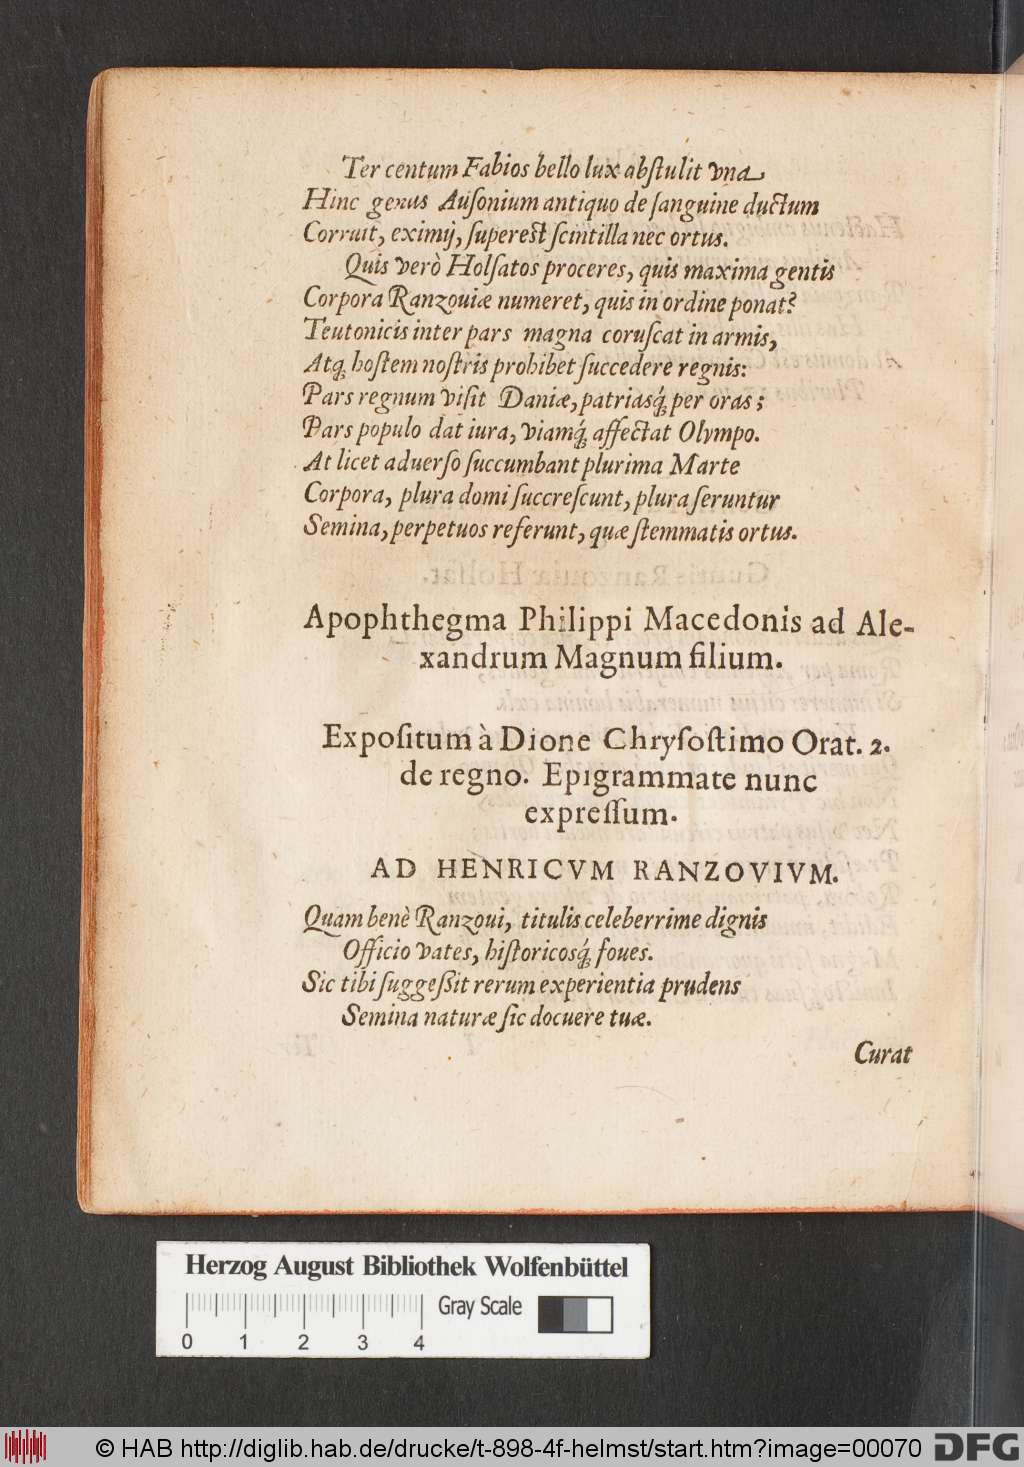 Ter centum Fabios bello lux abſtulit vna
Hinc genus Auſonium antiquo de ſanguine ductum
Corruit, eximij, ſupereſt ſcintilla nec ortus.
Quis verò Holſatos proceres, quis maxima gentis
Corpora Ranzouiæ numeret, quis in ordine ponat?
Teutonicis inter pars magna coruſcat in armis,
Atq́; hoſtem noſtris prohibet ſuccedere regnis:
Pars regnum viſit Daniæ, patriasq́; per oras;
Pars populo dat iura, viamq́; affectat Olympo.
At licet aduerſo ſuccumbant plurima Marte
Corpora, plura domi ſuccreſcunt, plura ſeruntur
Semina, perpetuos referunt, quæ ſtemmatis ortus.
Apophthegma Philippi Macedonis ad Ale-
xandrum Magnum filium.
Expoſitum à Dione Chryſoſtimo Orat. 2.
de regno. Epigrammate nunc
expreſſum.
AD HENRICVM RANZOVIVM.
Quam benè Ranzoui, titulis celeberrime dignis
Officio vates, hiſtoricosq́; foues.
Sic tibi ſuggeßit rerum experientia prudens
Semina naturæ ſic docuere tuæ.
Curat
Herzog August Bibliothek Wolfenbüttel
Gray Scale
0 1 2 3 4
© HAB http://diglib.hab.de/drucke/t-898-4f-helmst/start.htm?image=00070 DFG